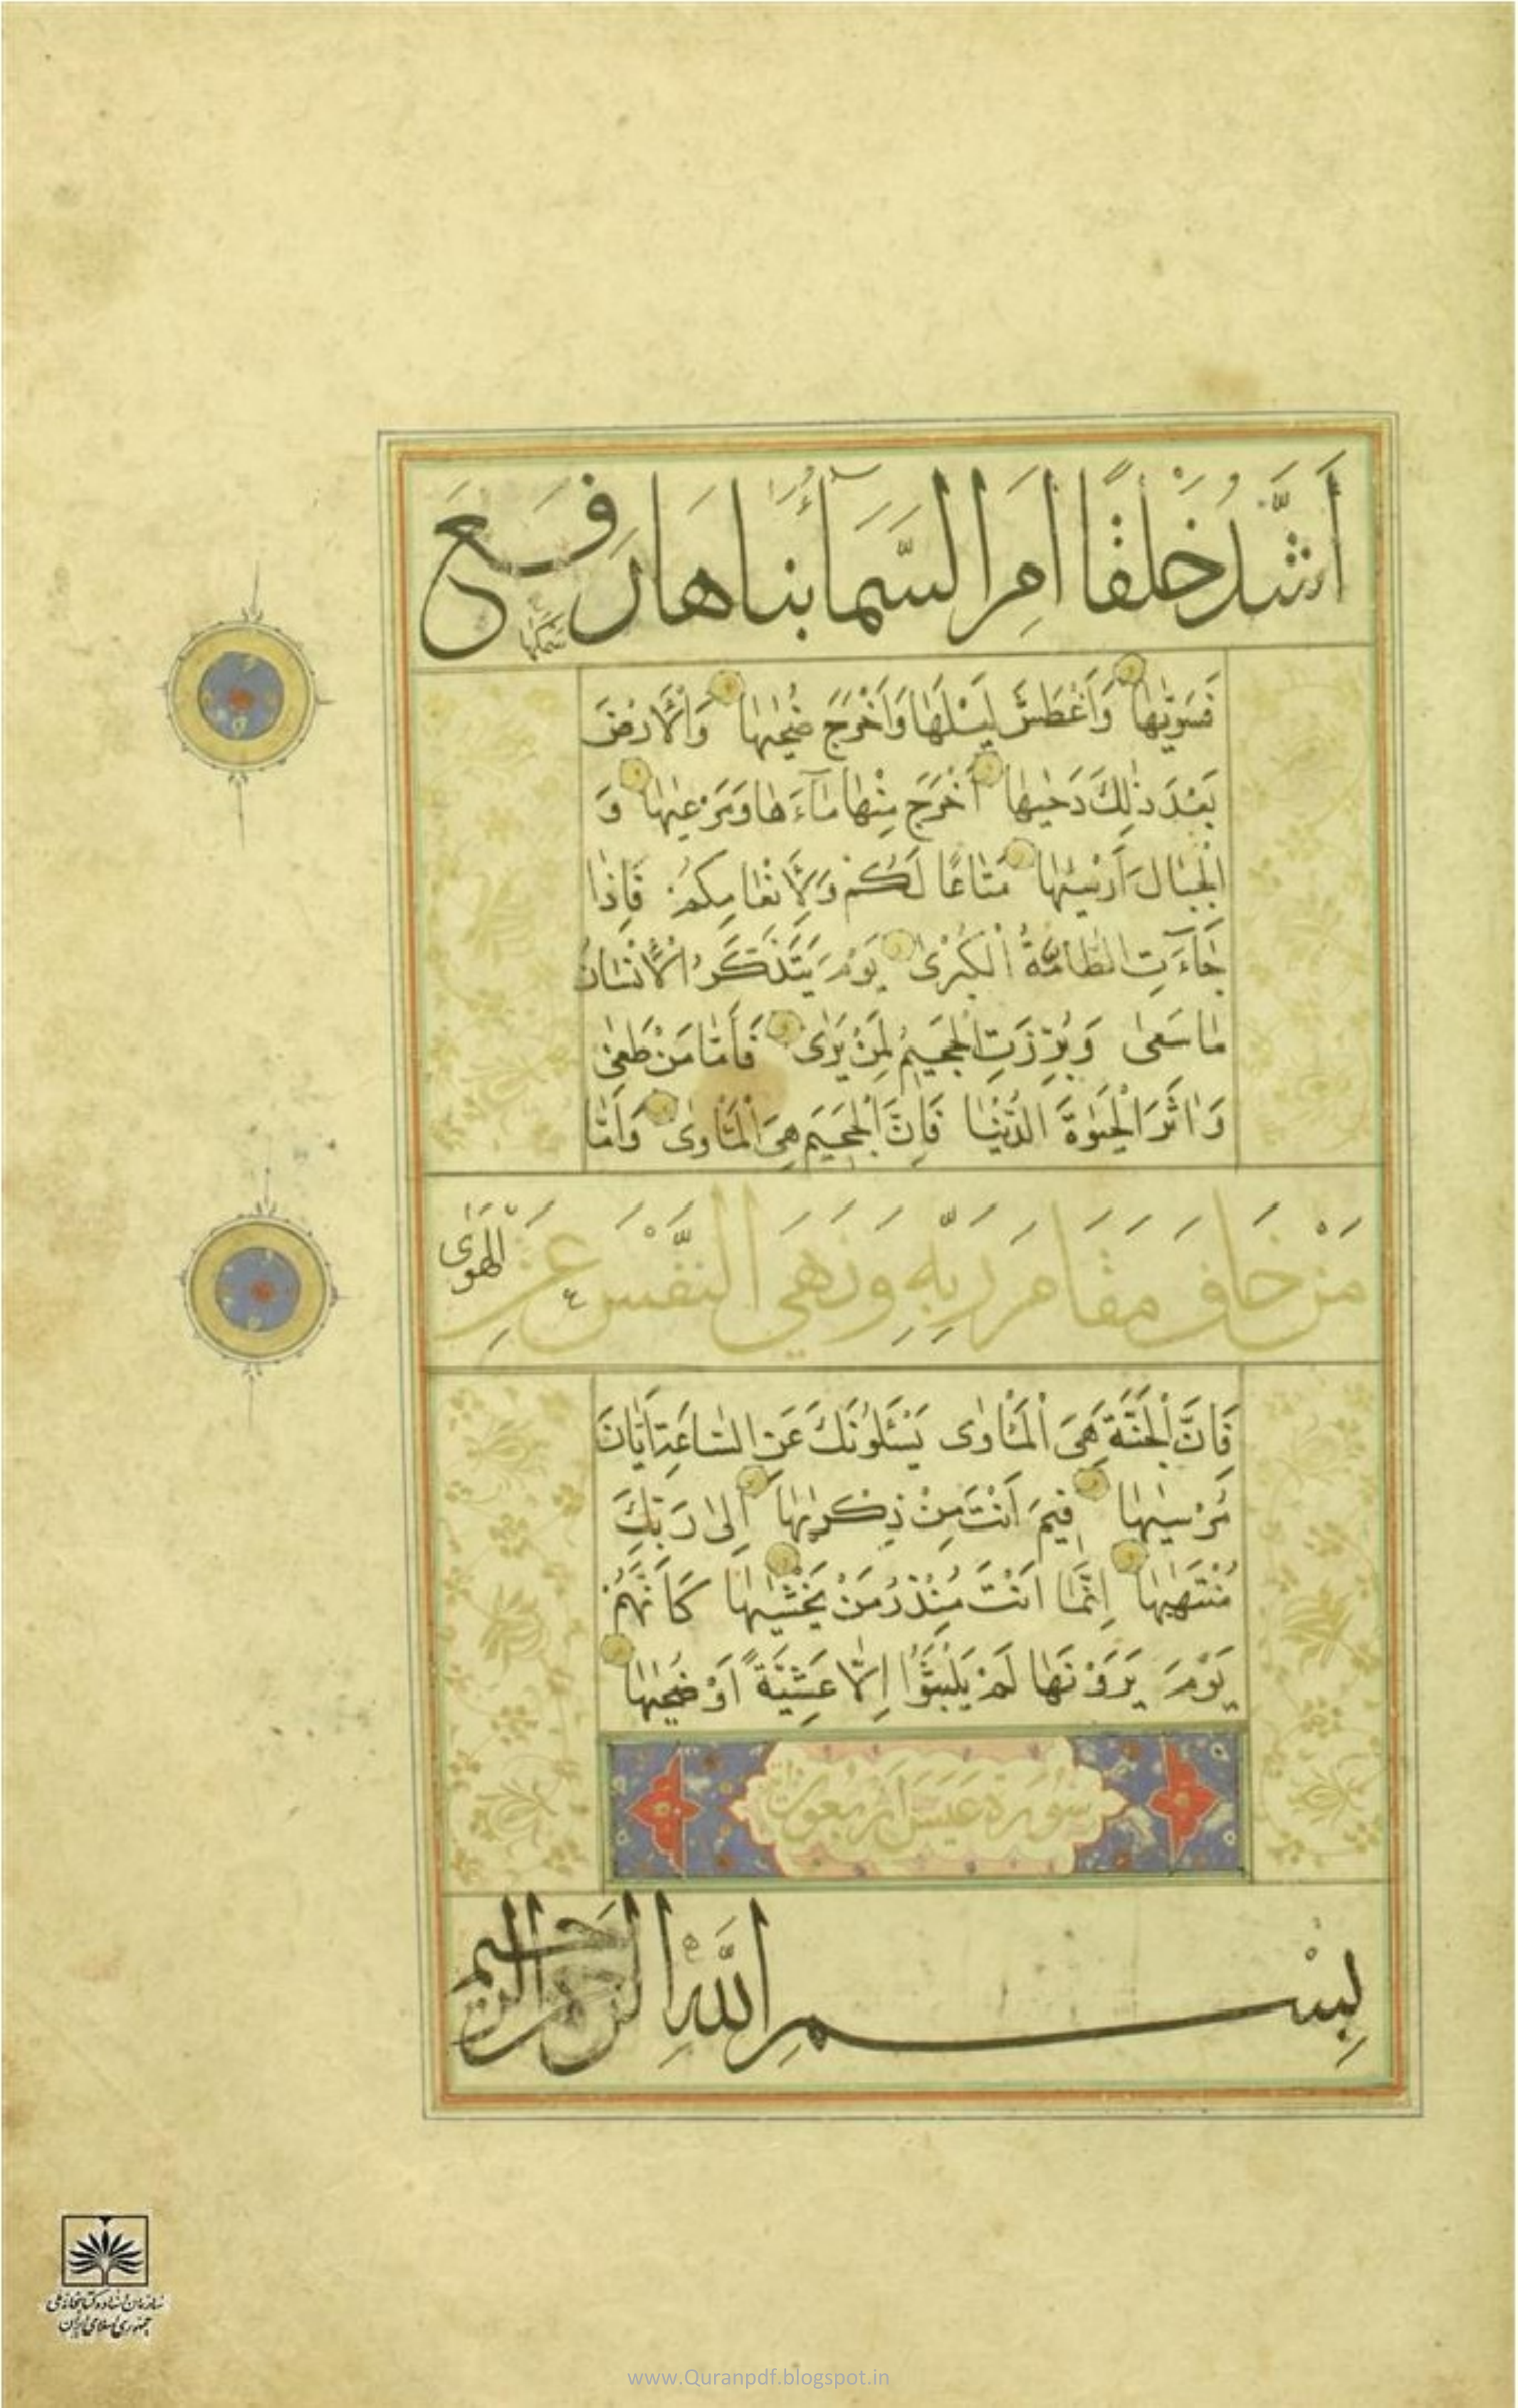 أَشَدُّ خَلْقًا أَمِ السَّمَآءُ بَنَاهَا رَفَعَ
سَمْكَهَا
فَسَوّٰيهَا وَأَغْطَشَ لَيْلَهَا وَأَخْرَجَ ضُحٰيهَا وَالْأَرْضَ
بَعْدَ ذٰلِكَ دَحٰيهَا أَخْرَجَ مِنْهَا مَآءَهَا وَمَرْعٰيهَا وَ
الْجِبَالَ أَرْسٰيهَا مَتَاعًا لَكُمْ وَلِأَنْعَامِكُمْ فَإِذَا
جَآءَتِ الطَّامَّةُ الْكُبْرٰى يَوْمَ يَتَذَكَّرُ الْإِنْسَانُ
مَا سَعٰى وَبُرِّزَتِ الْجَحِيمُ لِمَنْ يَرٰى فَأَمَّا مَنْ طَغٰى
وَاٰثَرَ الْحَيٰوةَ الدُّنْيَا فَإِنَّ الْجَحِيمَ هِيَ الْمَأْوٰى وَأَمَّا
مَنْ خَافَ مَقَامَ رَبِّهِ وَنَهَى النَّفْسَ عَنِ
الْهَوٰى
فَإِنَّ الْجَنَّةَ هِيَ الْمَأْوٰى يَسْئَلُونَكَ عَنِ السَّاعَةِ أَيَّانَ
مُرْسٰيهَا فِيمَ أَنْتَ مِنْ ذِكْرٰيهَا إِلٰى رَبِّكَ
مُنْتَهٰيهَا إِنَّمَا أَنْتَ مُنْذِرُ مَنْ يَخْشٰيهَا كَأَنَّهُمْ
يَوْمَ يَرَوْنَهَا لَمْ يَلْبَثُوا إِلَّا عَشِيَّةً أَوْ ضُحٰيهَا
سورة عبس اربعون
بِسْمِ اللَّهِ الرَّحْمٰنِ الرَّحِيمِ
سازمان اسناد و کتابخانه ملی
جمهوری اسلامی ایران
www.Quranpdf.blogspot.in